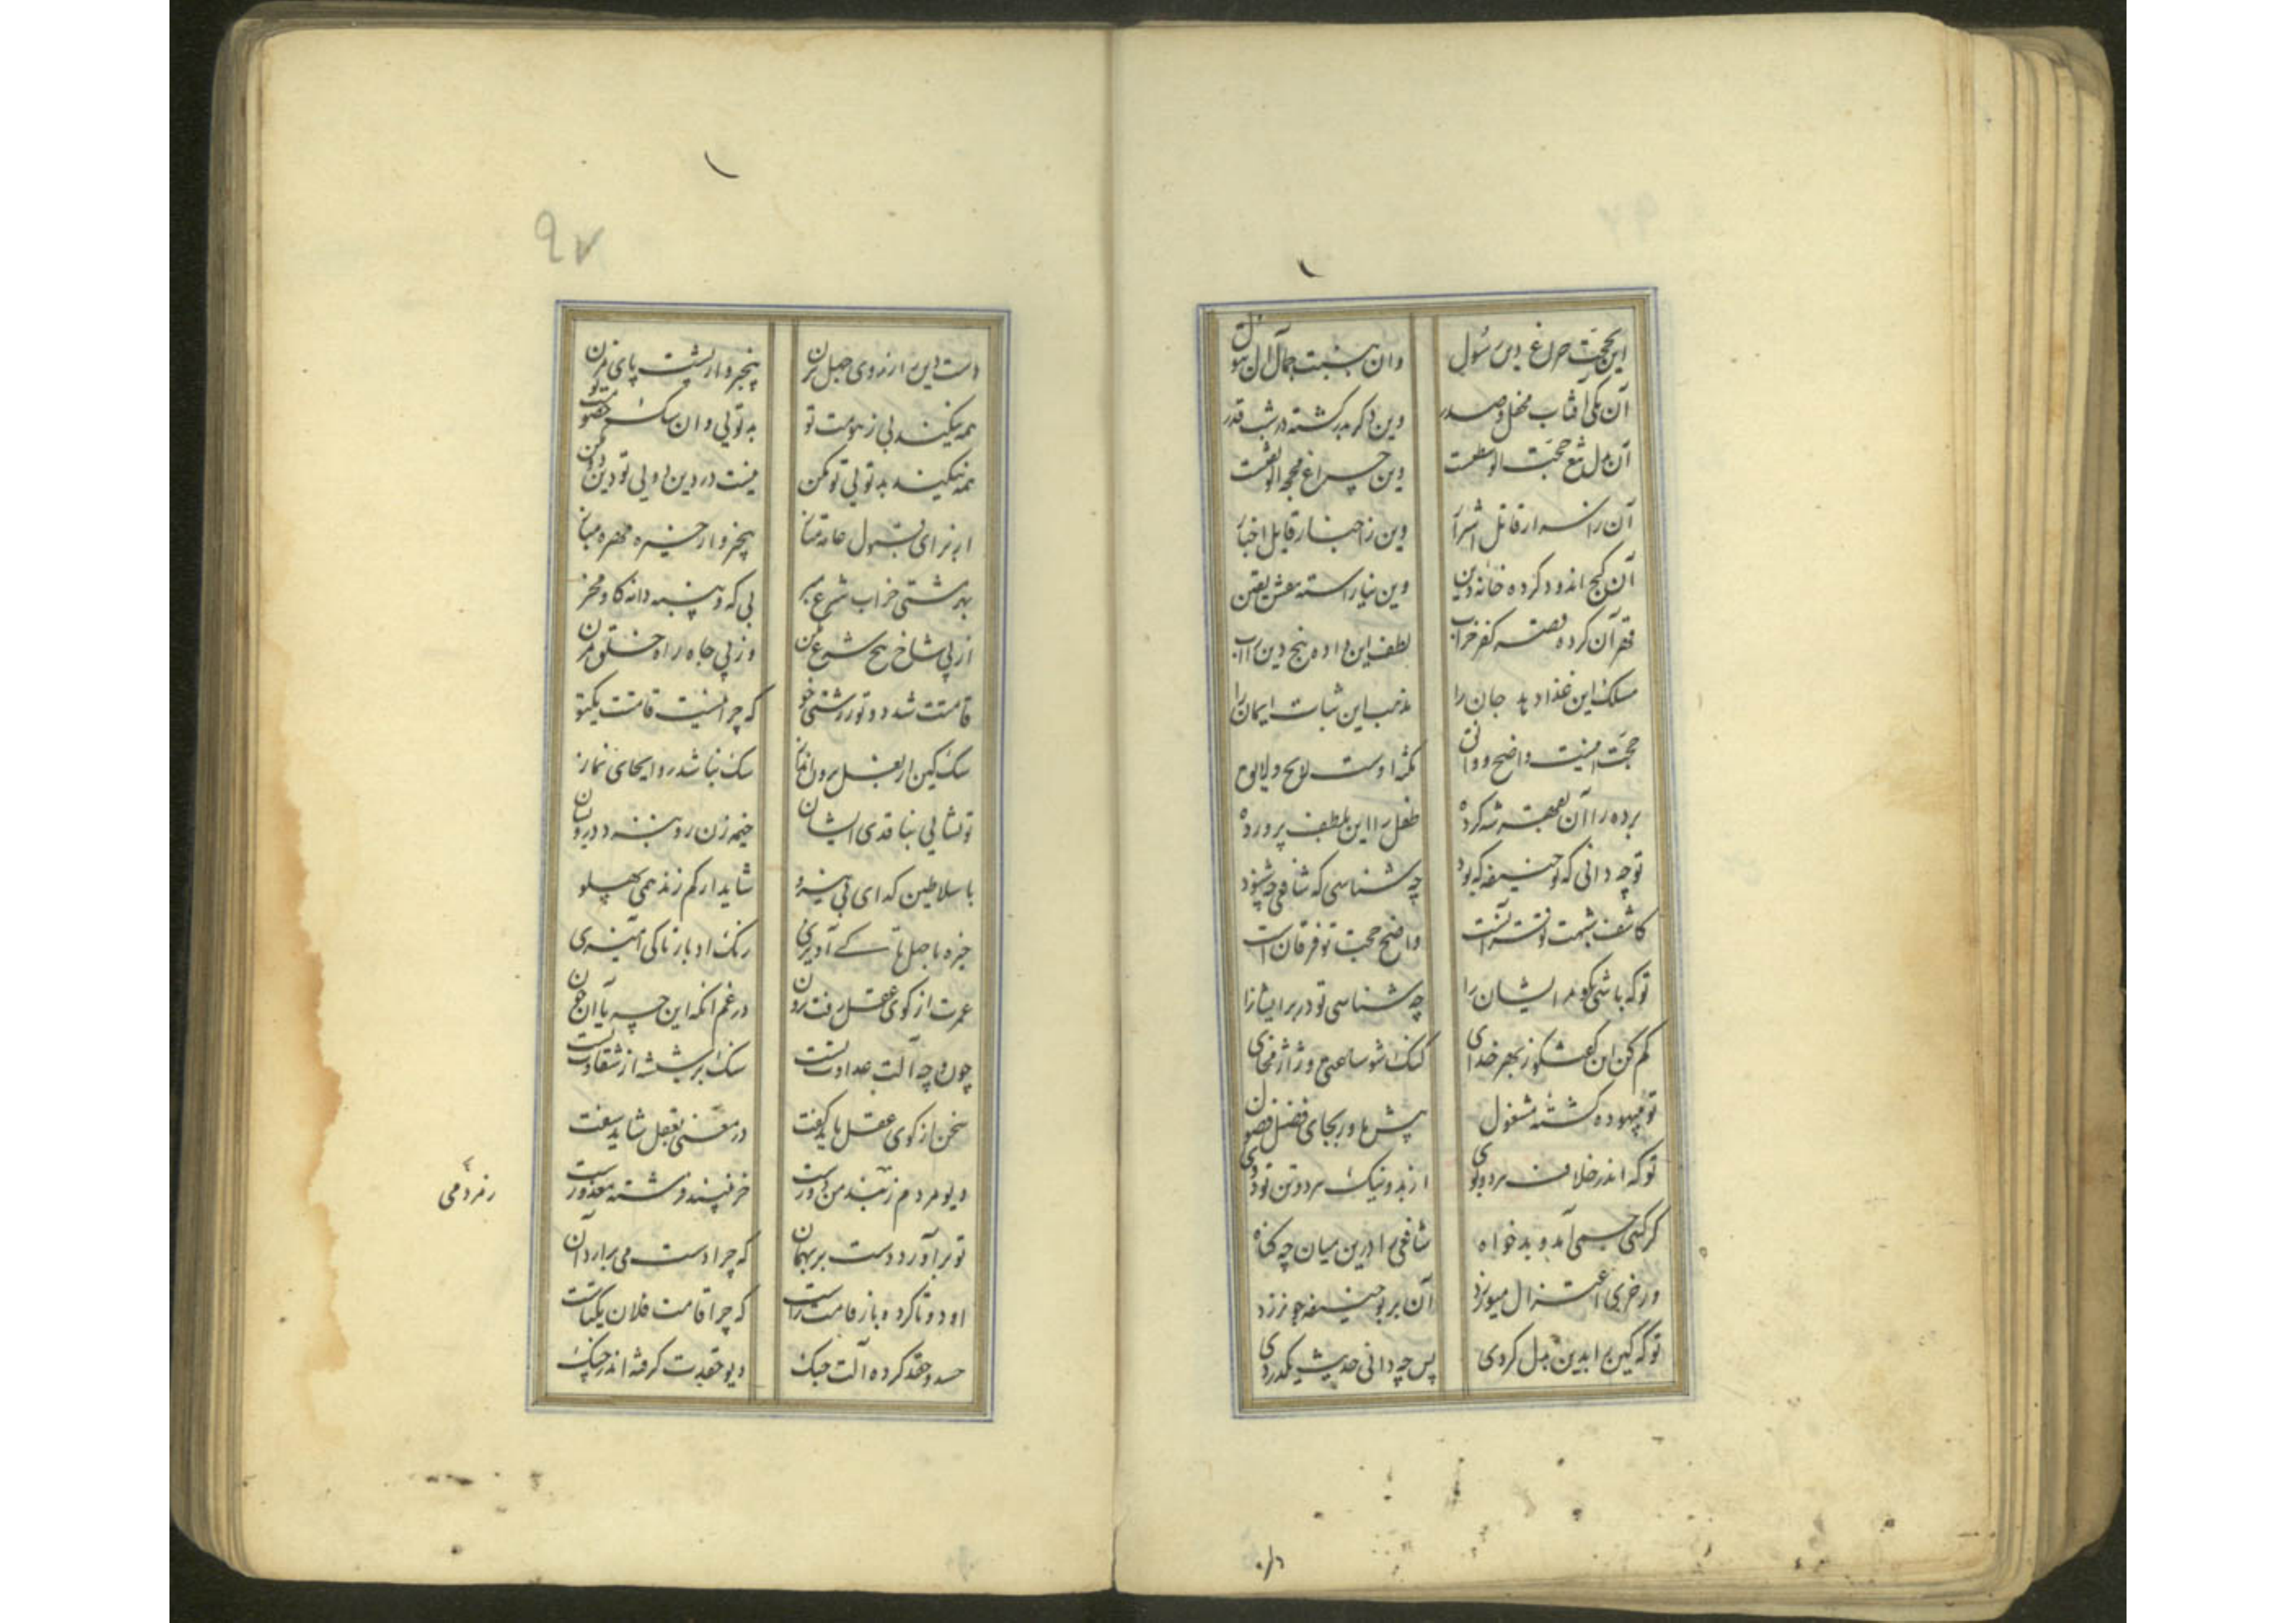 این بحجت چراغ دین رسول وان بنسبت جمال آل بتول
آن یکی آفتاب محفل و صدر وین دگر بدر گشته در شب قدر
آن بدل شمع حجت وین چراغ محجه
آن قاتل اشرار وین ز اخبار قایل اخبار
آن کج اندود کرده خانه دین وین بیاراسته بنقش یقین
قهر آن کرده قصه کفر خراب لطف این داده بیخ دین را آب
مسلک این غذا دهد جان را مذهب این ثبات ایمان را
حجت اینت واضح و واثق نکته اوست لایح و لایق
برده را آن بقهر شه کرده طفل را این بلطف پرورده
تو چه دانی که بوحنیفه که بود چه شناسی که شافعی چه شنود
کاشف تو قرآنست واضح حجت تو فرقان است
تو که باشی بگو مر ایشان را چه شناسی تو درّ برایشان را
کم کن این گفتگو ز بهر خدای گنگ شو ساعتی و ژاژ مخای
تو ببیهوده گشته مشغول پیش ماور بجای فضل فضول
تو که اندر خلاف مرد بوی از بد و نیک مرد و تن تو دوی
گر کسی آمد و بدخواه شافعی را درین میان چه گناه
ور خری اعتزال میورزد آن بر بوحنیفه جو نرزد
تو که کین را بدین بدل کردی پس چه دانی حدیث یکدردی
دست دین را ز روی جهل مزن پنجه وار پشت پای مزن
همه نیکند بی خصومت تو بد تویی و آن سگ خصومت تو
همه نیکند بد تویی تو مکن نیست در دین دویی تو دین دو مکن
از برای قبول عامه متاز بهر خیره مهره مباز
بهر مشتی خراب شرع مبر بی که و پنبه دانه گاو مخر
از پی شاخ بیخ شرع مکن وز پی جاه راه خلق مزن
قامتت شد دو تو ز زشتی خو که چرا نیست قامت یکتو
سگ کین از بغل برون انداز سگ نباشد روا بجای نماز
تو نشایی بناقدی ایشان خیمه زن رو بنزد درویشان
با سلاطین گدای بی نیرو شاید ار کم زند همی پهلو
خیره با جهل تا کی آویزی رنگ ادبار تا کی آمیزی
عمرت از کوی عقل رفت برون در غم آنکه این چه یا آن چون
چون و چه آلت عداوتست سگ ابریشه از شقاوتست
سخن از کوی عقل باید گفت در معنی بعقل شاید سفت
دیو مردم ز پند من دورست خر نبیند فرشته معذورست
رمز دمی
تو برآورده دست بر بهمان که چرا دست می برآرد آن
او دو تا کرده باز قامت راست که چرا قامت فلان یکتاست
حسد و حقد کرده آلت جنگ دیو حقدت گرفته اندر چنگ
۹۷